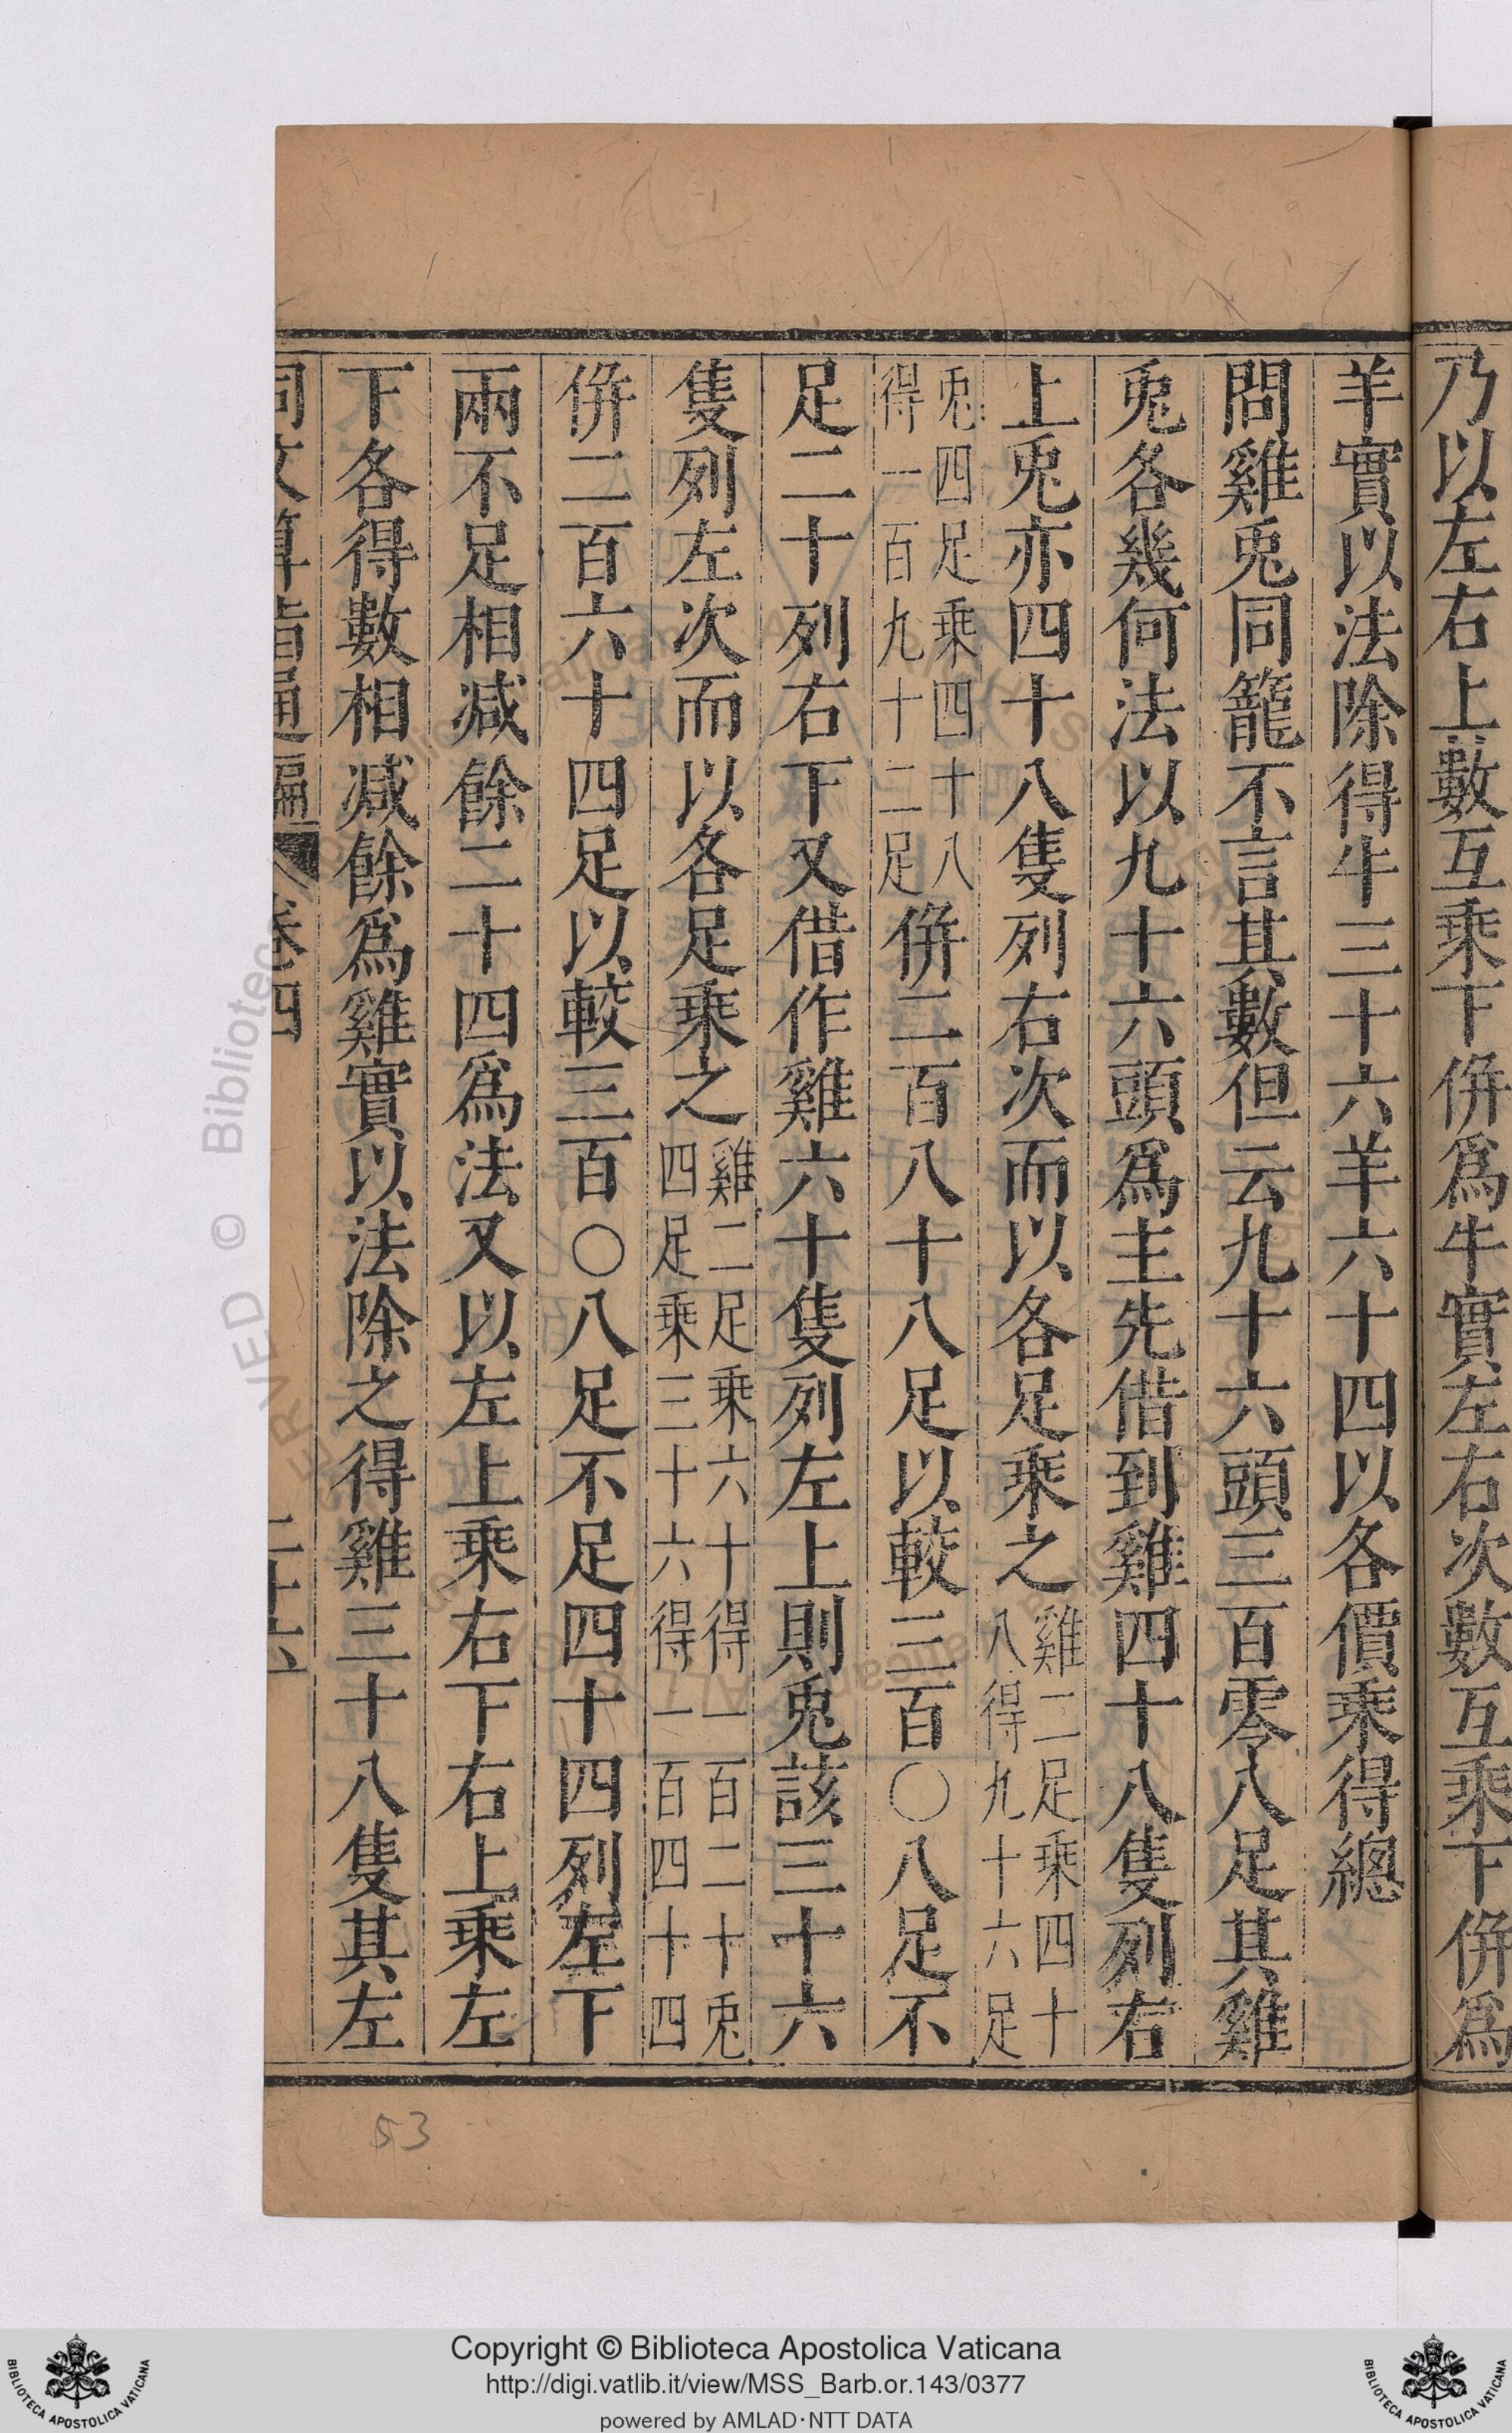 乃以左右上數互乘下併爲牛實左右次數互乘下併爲
羊實以法除得牛三十六羊六十四以各價乘得總
問雞兎同籠不言其數但云九十六頭三百零八足其雞
兎各幾何法以九十六頭爲主先借到雞四十八隻列右
上兎亦四十八隻列右次而以各足乘之雞二足乘四十
八得九十六足
兎四足乘四十八
得一百九十二足併二百八十八足以較三百〇八足不
足二十列右下又借作雞六十隻列左上則兎該三十六
隻列左次而以各足乘之雞二足乘六十得一百二十兎
四足乘三十六得一百四十四
併二百六十四足以較三百〇八足不足四十四列左下
兩不足相減餘二十四爲法又以左上乘右下右上乘左
下各得數相減餘爲雞實以法除之得雞三十八隻其左
同文算指通編 卷四 二十六
53
Copyright © Biblioteca Apostolica Vaticana
http://digi.vatlib.it/view/MSS_Barb.or.143/0377
powered by AMLAD·NTT DATA
BIBLIOTECA APOSTOLICA VATICANA
BIBLIOTECA APOSTOLICA VATICANA